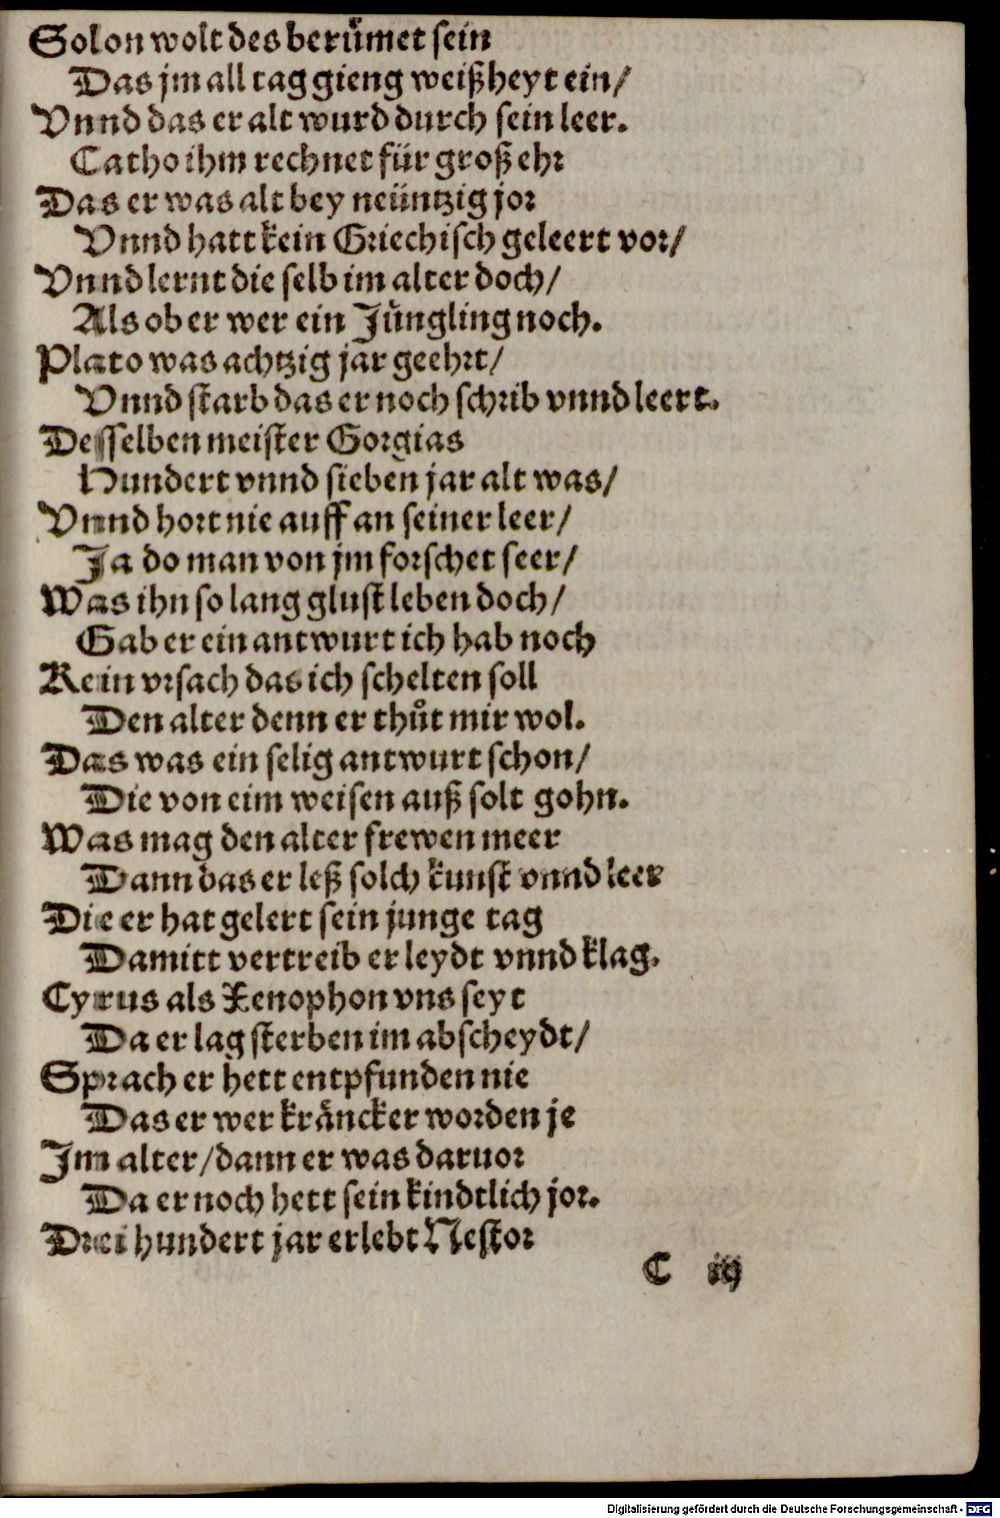 Solon wolt des berümet sein
Das jm all tag gieng weißheyt ein/
Vnnd das er alt wurd durch sein leer.
Catho ihm rechnet für groß ehr
Das er was alt bey neüntzig jor
Vnnd hatt kein Griechisch geleert vor/
Vnnd lernt die selb im alter doch/
Als ob er wer ein Jüngling noch.
Plato was achtzig jar geehrt/
Vnnd starb das er noch schrib vnnd leert.
Desselben meister Gorgias
Hundert vnnd sieben jar alt was/
Vnnd hort nie auff an seiner leer/
Ja do man von jm forschet seer/
Was ihn so lang glust leben doch/
Gab er ein antwurt ich hab noch
Kein vrsach das ich schelten soll
Den alter denn er thůt mir wol.
Das was ein selig antwurt schon/
Die von eim weisen auß solt gohn.
Was mag den alter frewen meer
Dann das er leß solch kunst vnnd leer
Die er hat gelert sein junge tag
Damitt vertreib er leydt vnnd klag.
Cyrus als Xenophon vns seyt
Da er lag sterben im abscheydt/
Sprach er hett entpfunden nie
Das er wer kräncker worden je
Jm alter/dann er was daruor
Da er noch hett sein kindtlich jor.
Drei hundert jar erlebt Nestor
C iij
Digitalisierung gefördert durch die Deutsche Forschungsgemeinschaft - DFG